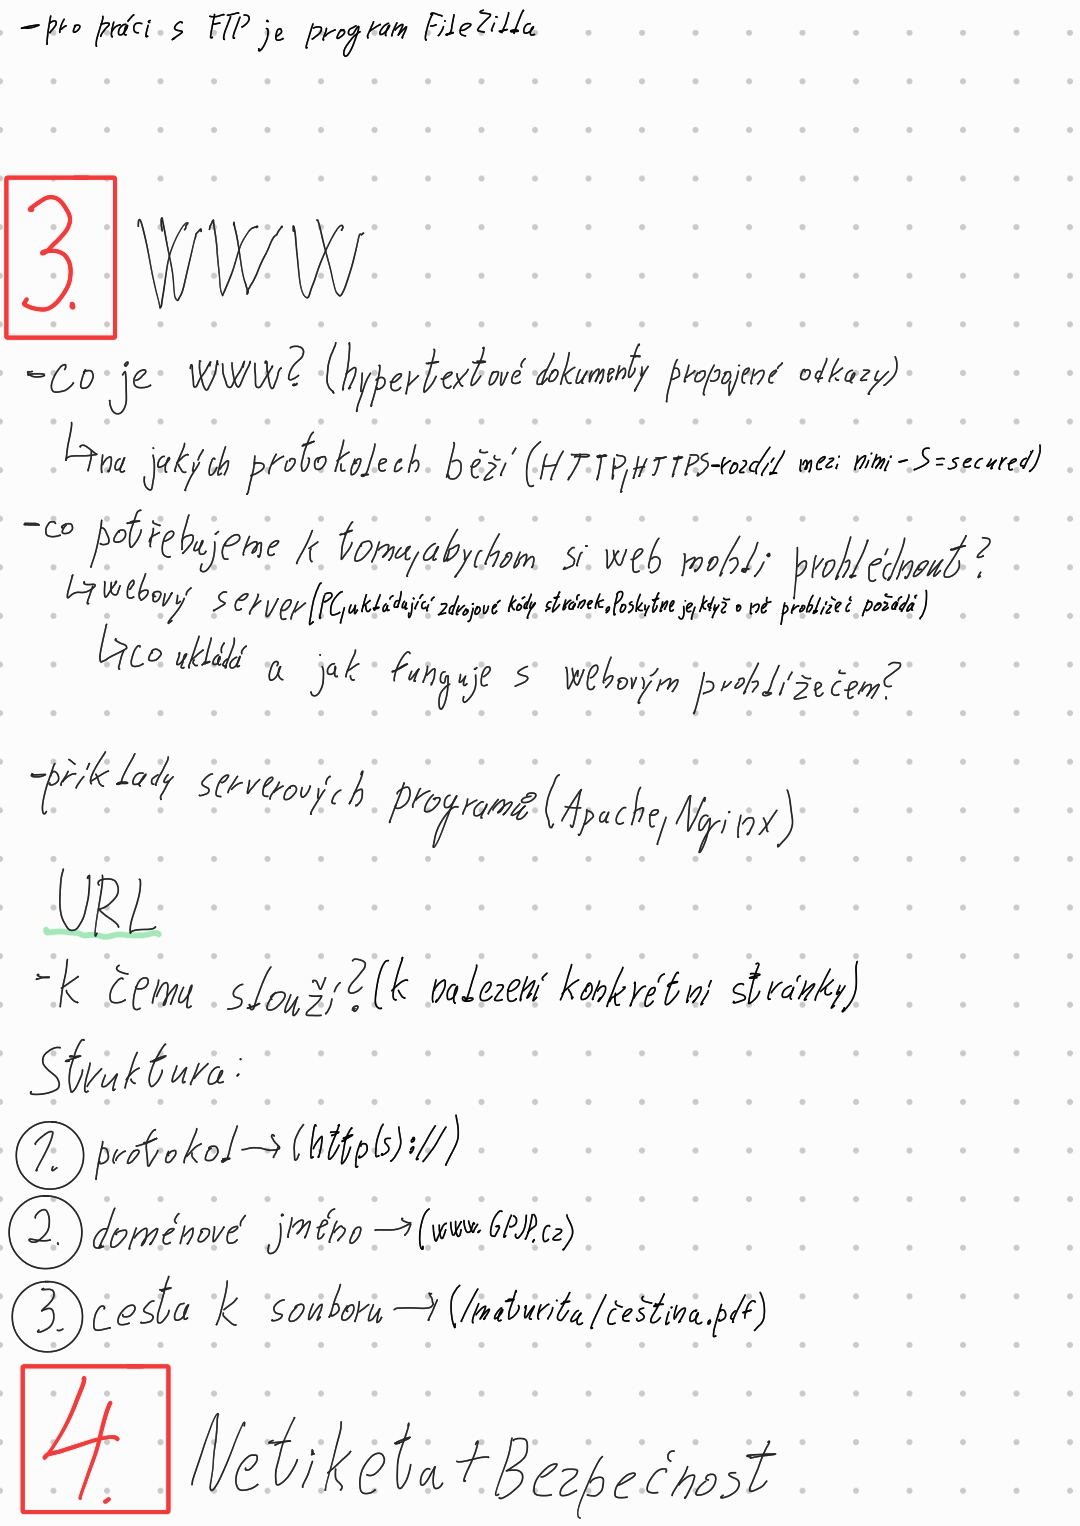 -pro práci s FTP je program FileZilla
3. WWW
-co je WWW? (hypertextové dokumenty propojené odkazy)
↳na jakých protokolech běží (HTTP,HTTPS-rozdíl mezi nimi - S=secured)
-co potřebujeme k tomu,abychom si web mohli prohlédnout?
↳webový server(PC,ukládající zdrojové kódy stránek.Poskytne je,když o ně problížeč požádá)
↳co ukládá a jak funguje s webovým prohlížečem?
-příklady serverových programů(Apache,Nginx)
URL
-k čemu slouží?(k nalezení konkrétní stránky)
Struktura:
1. protokol→(http(s)://)
2. doménové jméno→(www.GPJP.cz)
3. cesta k souboru→(/maturita/čeština.pdf)
4. Netiketa+Bezpečnost